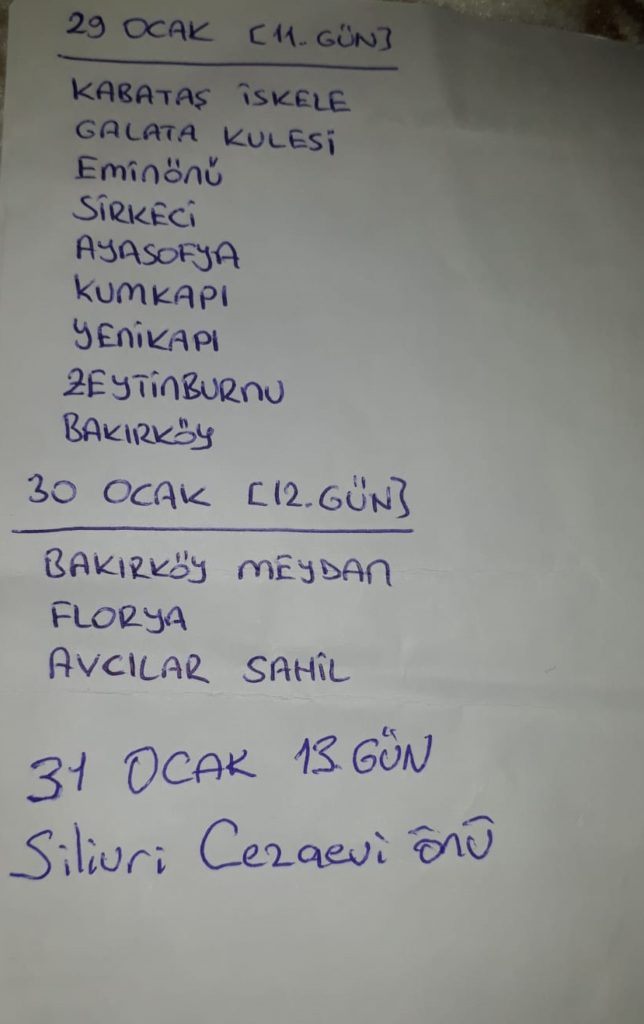 29 OCAK [11. GÜN]
KABATAŞ İSKELE
GALATA KULESİ
EMİNÖNÜ
SİRKECİ
AYASOFYA
KUMKAPI
YENİKAPI
ZEYTİNBURNU
BAKIRKÖY
30 OCAK [12. GÜN]
BAKIRKÖY MEYDAN
FLORYA
AVCILAR SAHİL
31 OCAK 13. GÜN
Silivri Cezaevi önü